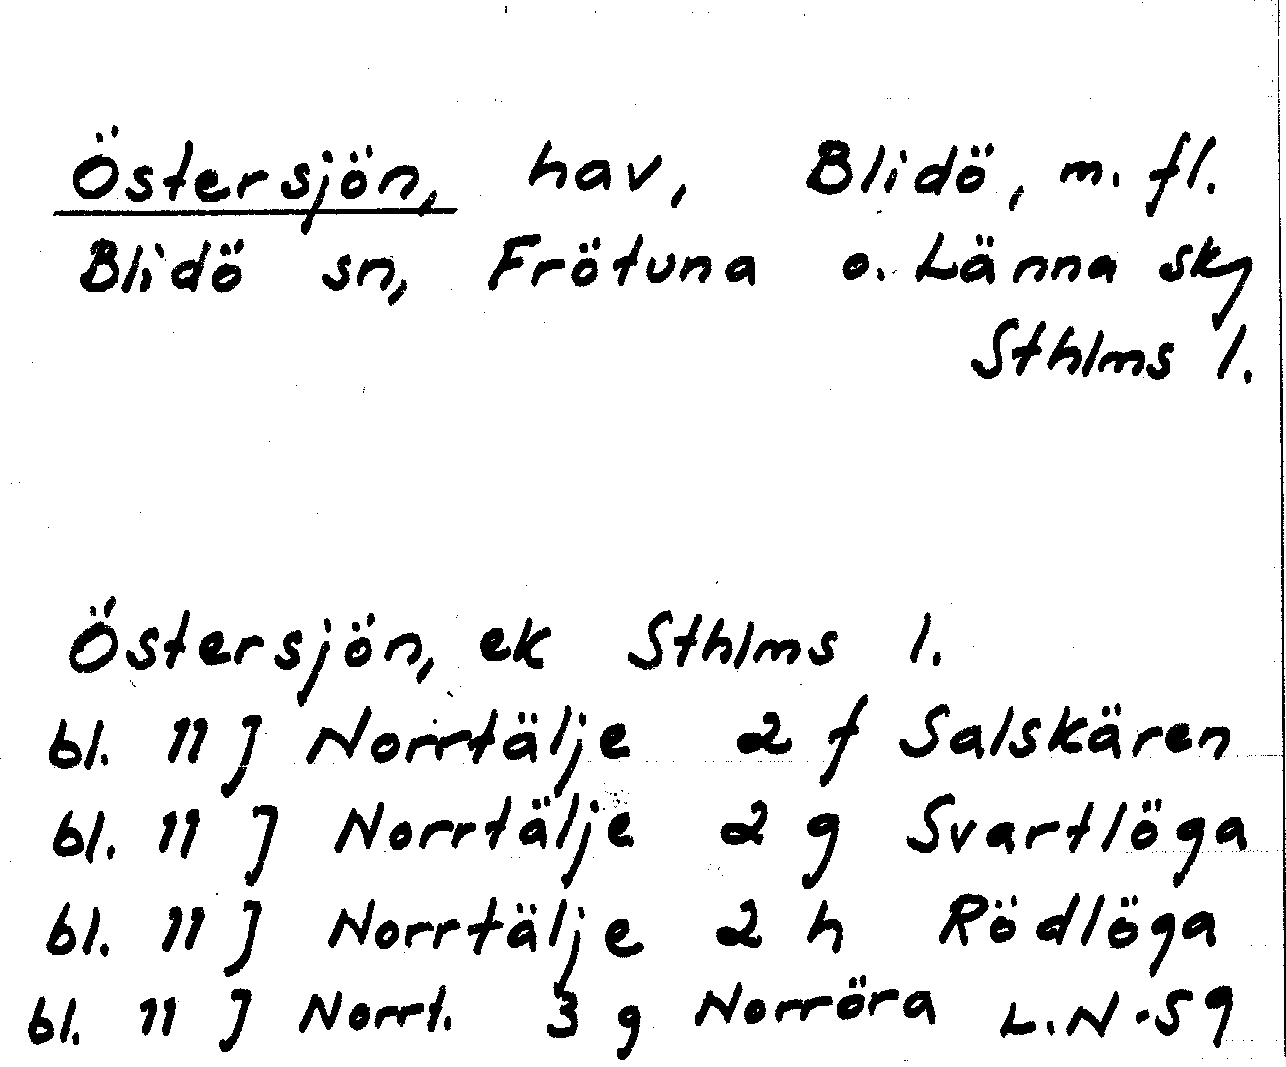 Östersjön, hav, Blidö, m. fl.
Blidö sn, Frötuna o. Länna sk,
Sthlms l.
Östersjön, ek Sthlms l.
bl. 11 J Norrtälje 2 f Salskären
bl. 11 J Norrtälje 2 g Svartlöga
bl. 11 J Norrtälje 2 h Rödlöga
bl. 11 J Norrt. 3 g Norröra L.N-59